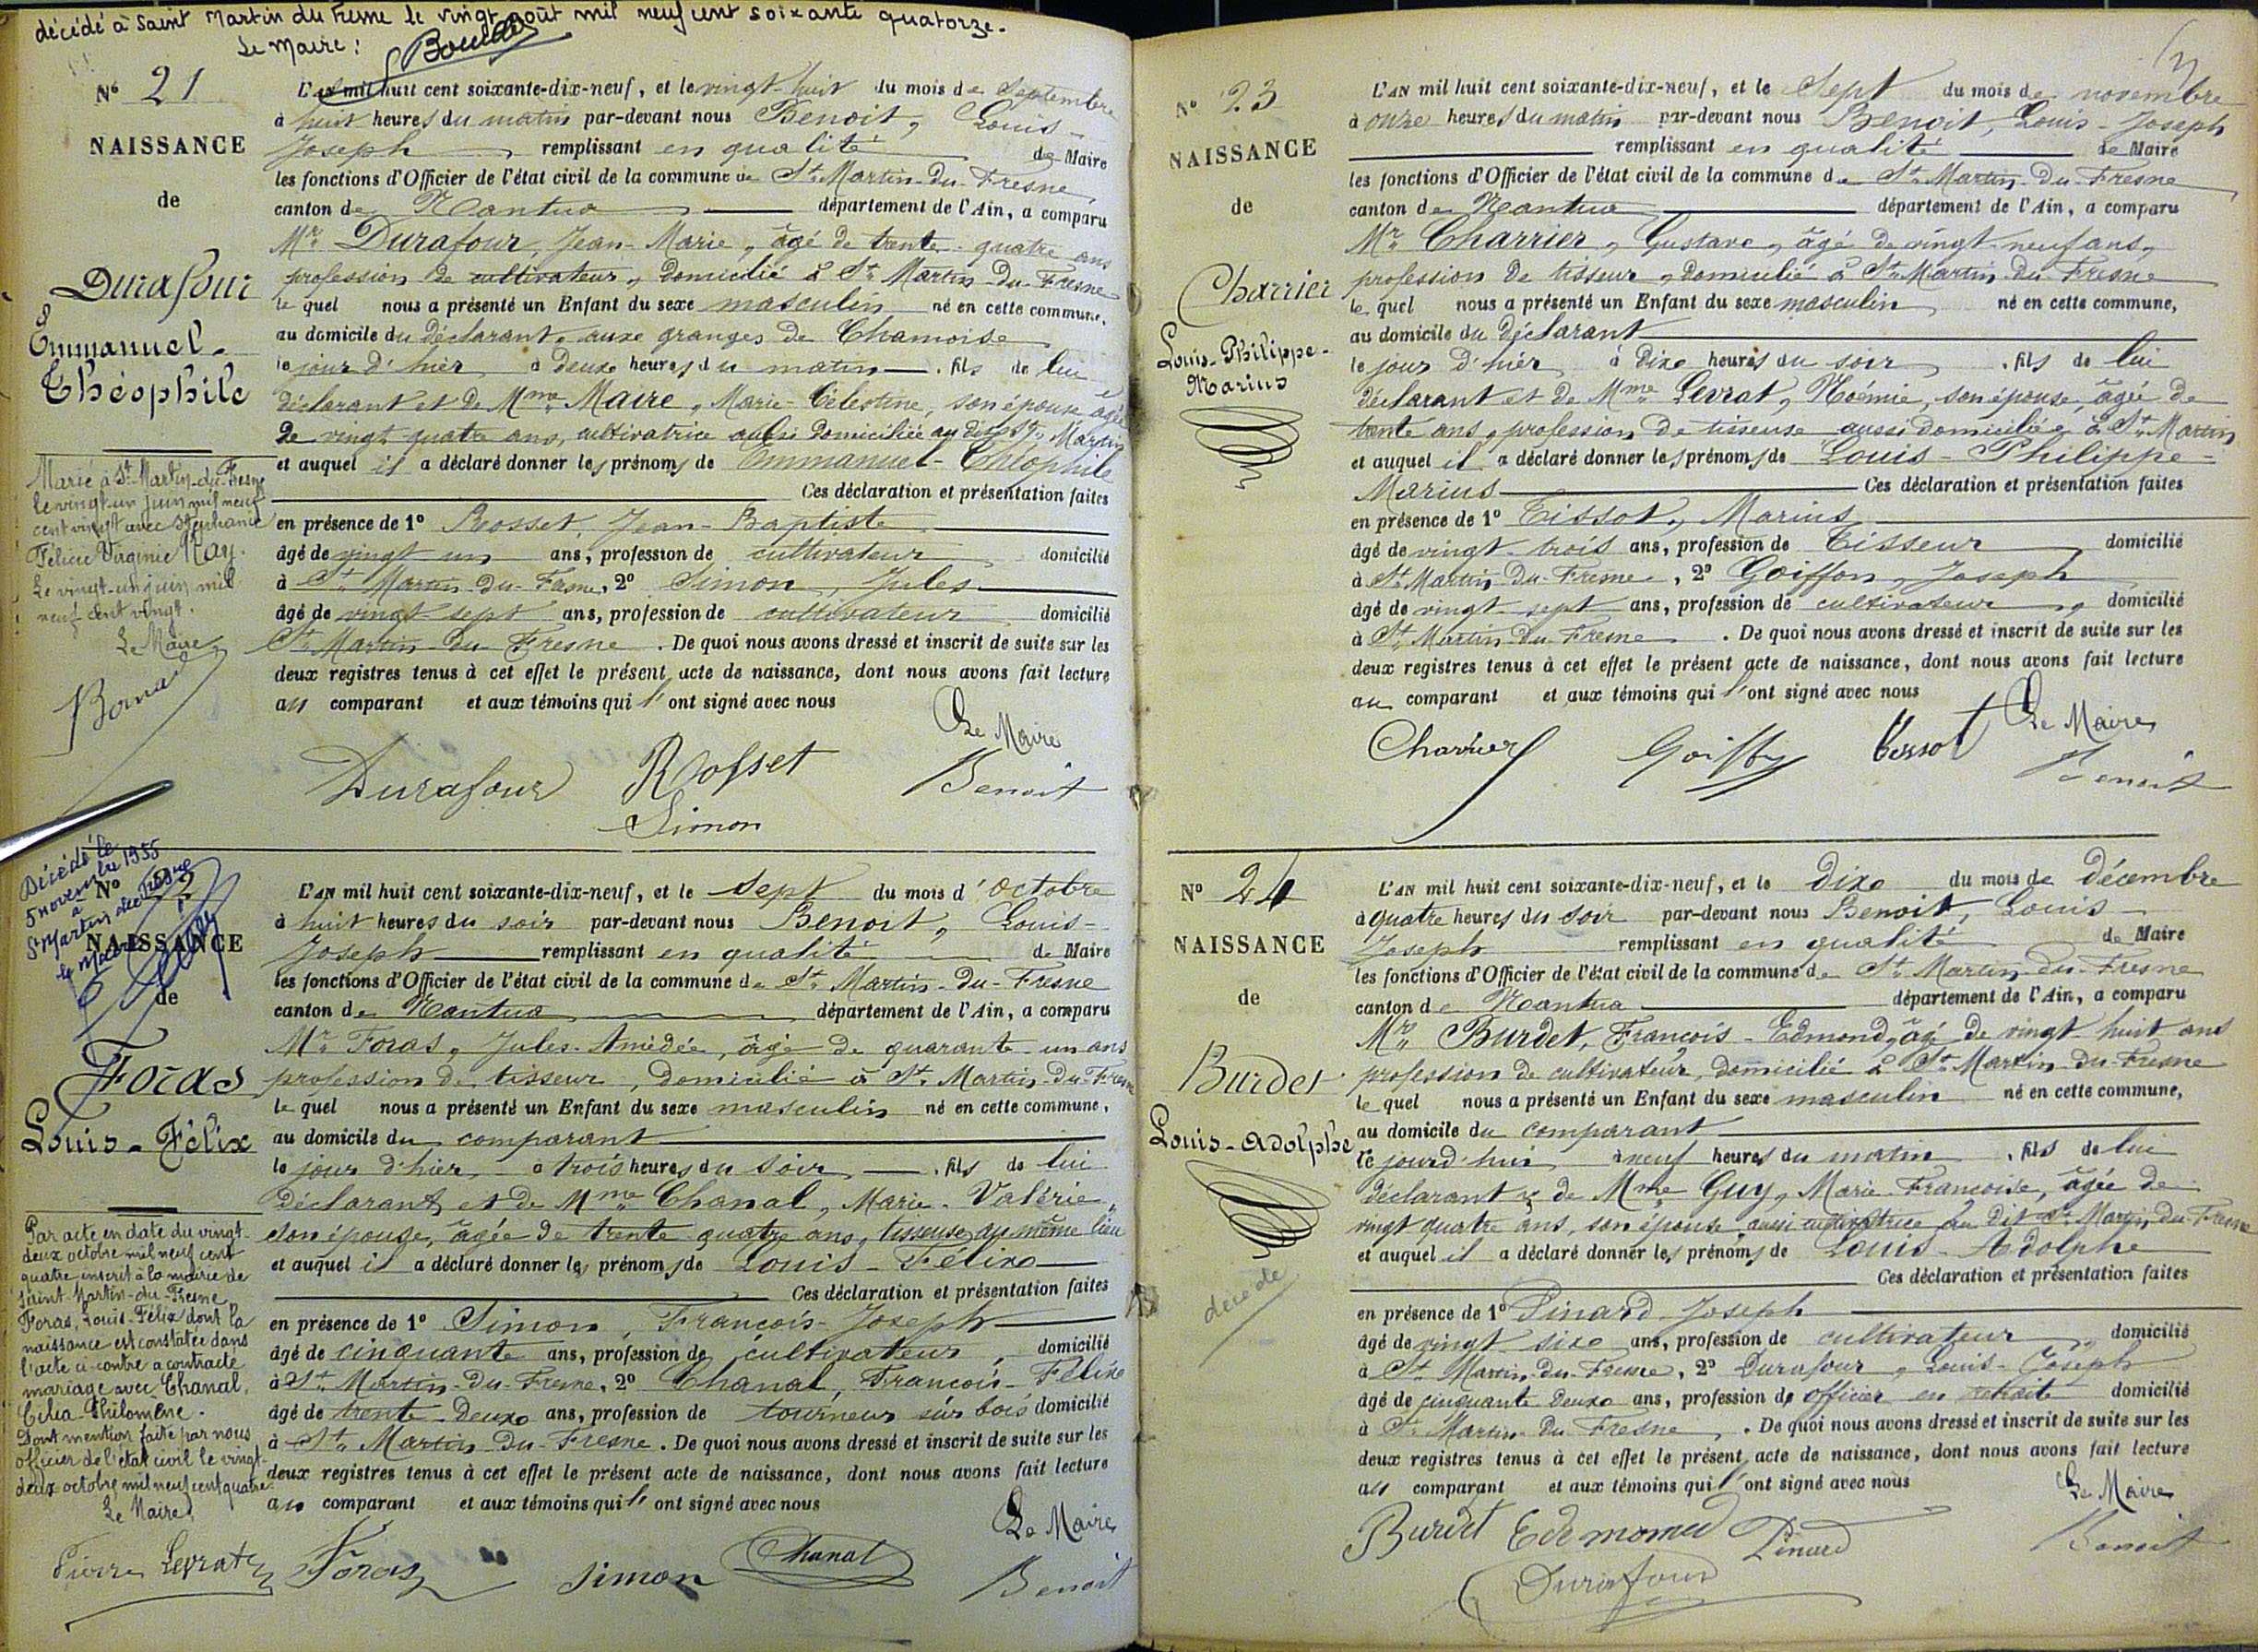 décédé à Saint Martin du Fresne le vingt août mil neuf cent soixante quatorze.
Le Maire :
N° 21
NAISSANCE
de
Durafour
Emmanuel-
Théophile
Marié à St Martin-du-Fresne
le vingt-un juin mil neuf
cent vingt avec Stéphanie
Félicie Virginie Nay.
Le vingt-un juin mil
neuf cent vingt.
Le Maire
L'AN mil huit cent soixante-dix-neuf, et le vingt-huit du mois de Septembre
à huit heures du matin par-devant nous Benoit, Louis-
Joseph remplissant en qualité de Maire
les fonctions d'Officier de l'état civil de la commune de St Martin-du-Fresne
canton de Nantua département de l'Ain, a comparu
Mr Durafour, Jean-Marie, âgé de trente-quatre ans
profession de cultivateur, domicilié à St Martin-du-Fresne
le quel nous a présenté un Enfant du sexe masculin né en cette commune,
au domicile du déclarant, aux granges de Chamoise
le jour d'hier à Deux heures du matin, fils de lui
déclarant et de Mme Maire, Marie-Célestine, son épouse âgée
de vingt quatre ans, cultivatrice aussi domiciliée au dit St Martin
et auquel il a déclaré donner les prénoms de Emmanuel-Théophile
Ces déclaration et présentation faites
en présence de 1° Rosset, Jean-Baptiste
âgé de vingt un ans, profession de cultivateur domicilié
à St Martin-du-Fresne, 2° Simon, Jules
âgé de vingt sept ans, profession de cultivateur domicilié
St Martin-du-Fresne. De quoi nous avons dressé et inscrit de suite sur les
deux registres tenus à cet effet le présent acte de naissance, dont nous avons fait lecture
au comparant et aux témoins qui l'ont signé avec nous
Le Maire
Durafour Rosset Benoit
Simon
Décédé le
5 novembre 1955
à
St Martin du Fresne
le Maire
N° 22
NAISSANCE
de
Foras
Louis-Félix
Par acte en date du vingt-
deux octobre mil neuf cent
quatre inscrit à la mairie de
Saint-Martin-du-Fresne
Foras, Louis-Félix dont la
naissance est constatée dans
l'acte ci-contre a contracté
mariage avec Chanal,
Célia-Philomène.
Dont mention faite par nous
officier de l'état civil le vingt-
deux octobre mil neuf cent quatre.
Le Maire,
Pierre Levrat
L'AN mil huit cent soixante-dix-neuf, et le Sept du mois d'Octobre
à huit heures du soir par-devant nous Benoit, Louis-
Joseph remplissant en qualité de Maire
les fonctions d'Officier de l'état civil de la commune de St Martin-du-Fresne
canton de Nantua département de l'Ain, a comparu
Mr Foras, Jules-Amédée, âgé de quarante-un ans
profession de tisseur, domicilié à St Martin-du-Fresne
le quel nous a présenté un Enfant du sexe masculin né en cette commune,
au domicile du comparant
le jour d'hier, à trois heures du soir, fils de lui
déclarant et de Mme Chanal, Marie-Valérie,
son épouse, âgée de trente quatre ans, tisseuse au même lieu
et auquel il a déclaré donner les prénoms de Louis-Félix
Ces déclaration et présentation faites
en présence de 1° Simon, François-Joseph
âgé de cinquante ans, profession de cultivateur, domicilié
à St Martin-du-Fresne, 2° Chanal, François-Félix
âgé de trente-Deux ans, profession de tourneur sur bois domicilié
à St Martin-du-Fresne. De quoi nous avons dressé et inscrit de suite sur les
deux registres tenus à cet effet le présent acte de naissance, dont nous avons fait lecture
au comparant et aux témoins qui l'ont signé avec nous
Le Maire
Foras Simon Chanal Benoit
N° 23
NAISSANCE
de
Charrier
Louis-Philippe-
Marius
L'AN mil huit cent soixante-dix-neuf, et le Sept du mois de novembre
à onze heures du matin par-devant nous Benoit, Louis-Joseph
remplissant en qualité de Maire
les fonctions d'Officier de l'état civil de la commune de St Martin-du-Fresne
canton de Nantua département de l'Ain, a comparu
Mr Charrier, Gustave, âgé de vingt-neuf ans,
profession de tisseur, domicilié à St Martin-du-Fresne
le quel nous a présenté un Enfant du sexe masculin né en cette commune,
au domicile du déclarant
le jour d'hier à Dix heures du soir, fils de lui
déclarant et de Mme Levrat, Noémie, son épouse, âgée de
trente ans, profession de tisseuse aussi domiciliée à St Martin
et auquel il a déclaré donner les prénoms de Louis-Philippe-
Marius Ces déclaration et présentation faites
en présence de 1° Tissot, Marius
âgé de vingt-trois ans, profession de Tisseur domicilié
à St Martin-du-Fresne, 2° Goiffon, Joseph
âgé de vingt-sept ans, profession de cultivateur domicilié
à St Martin-du-Fresne. De quoi nous avons dressé et inscrit de suite sur les
deux registres tenus à cet effet le présent acte de naissance, dont nous avons fait lecture
au comparant et aux témoins qui l'ont signé avec nous
Le Maire
Charrier Goiffon Tissot Benoit
N° 24
NAISSANCE
de
Burdet
Louis-Adolphe
décédé
L'AN mil huit cent soixante-dix-neuf, et le dix du mois de décembre
à quatre heures du soir par-devant nous Benoit, Louis-
Joseph remplissant en qualité de Maire
les fonctions d'Officier de l'état civil de la commune de St Martin-du-Fresne
canton de Nantua département de l'Ain, a comparu
Mr Burdet, François-Edmond, âgé de vingt-huit ans
profession de cultivateur, domicilié à St Martin-du-Fresne
le quel nous a présenté un Enfant du sexe masculin né en cette commune,
au domicile du comparant
le jourd'hui à neuf heures du matin, fils de lui
déclarant & de Mme Guy, Marie-Françoise, âgée de
vingt quatre ans, son épouse aussi cultivatrice au dit St Martin-du-Fresne
et auquel il a déclaré donner les prénoms de Louis-Adolphe
Ces déclaration et présentation faites
en présence de 1° Pinard Joseph
âgé de vingt-six ans, profession de cultivateur domicilié
à St Martin-du-Fresne, 2° Durafour, Louis-Joseph
âgé de cinquante Deux ans, profession de officier en retraite domicilié
à St Martin-du-Fresne. De quoi nous avons dressé et inscrit de suite sur les
deux registres tenus à cet effet le présent acte de naissance, dont nous avons fait lecture
au comparant et aux témoins qui l'ont signé avec nous
Le Maire
Burdet Edemomd Pinard Benoit
Durafour